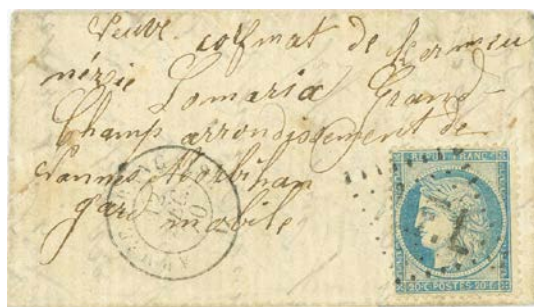 Veuve colmat de Kermeu
nézie Lomaria Grand-
Champ arrondissement de
Vannes Morbihan
gard mobile
FRANC
20c POSTES 20c
1